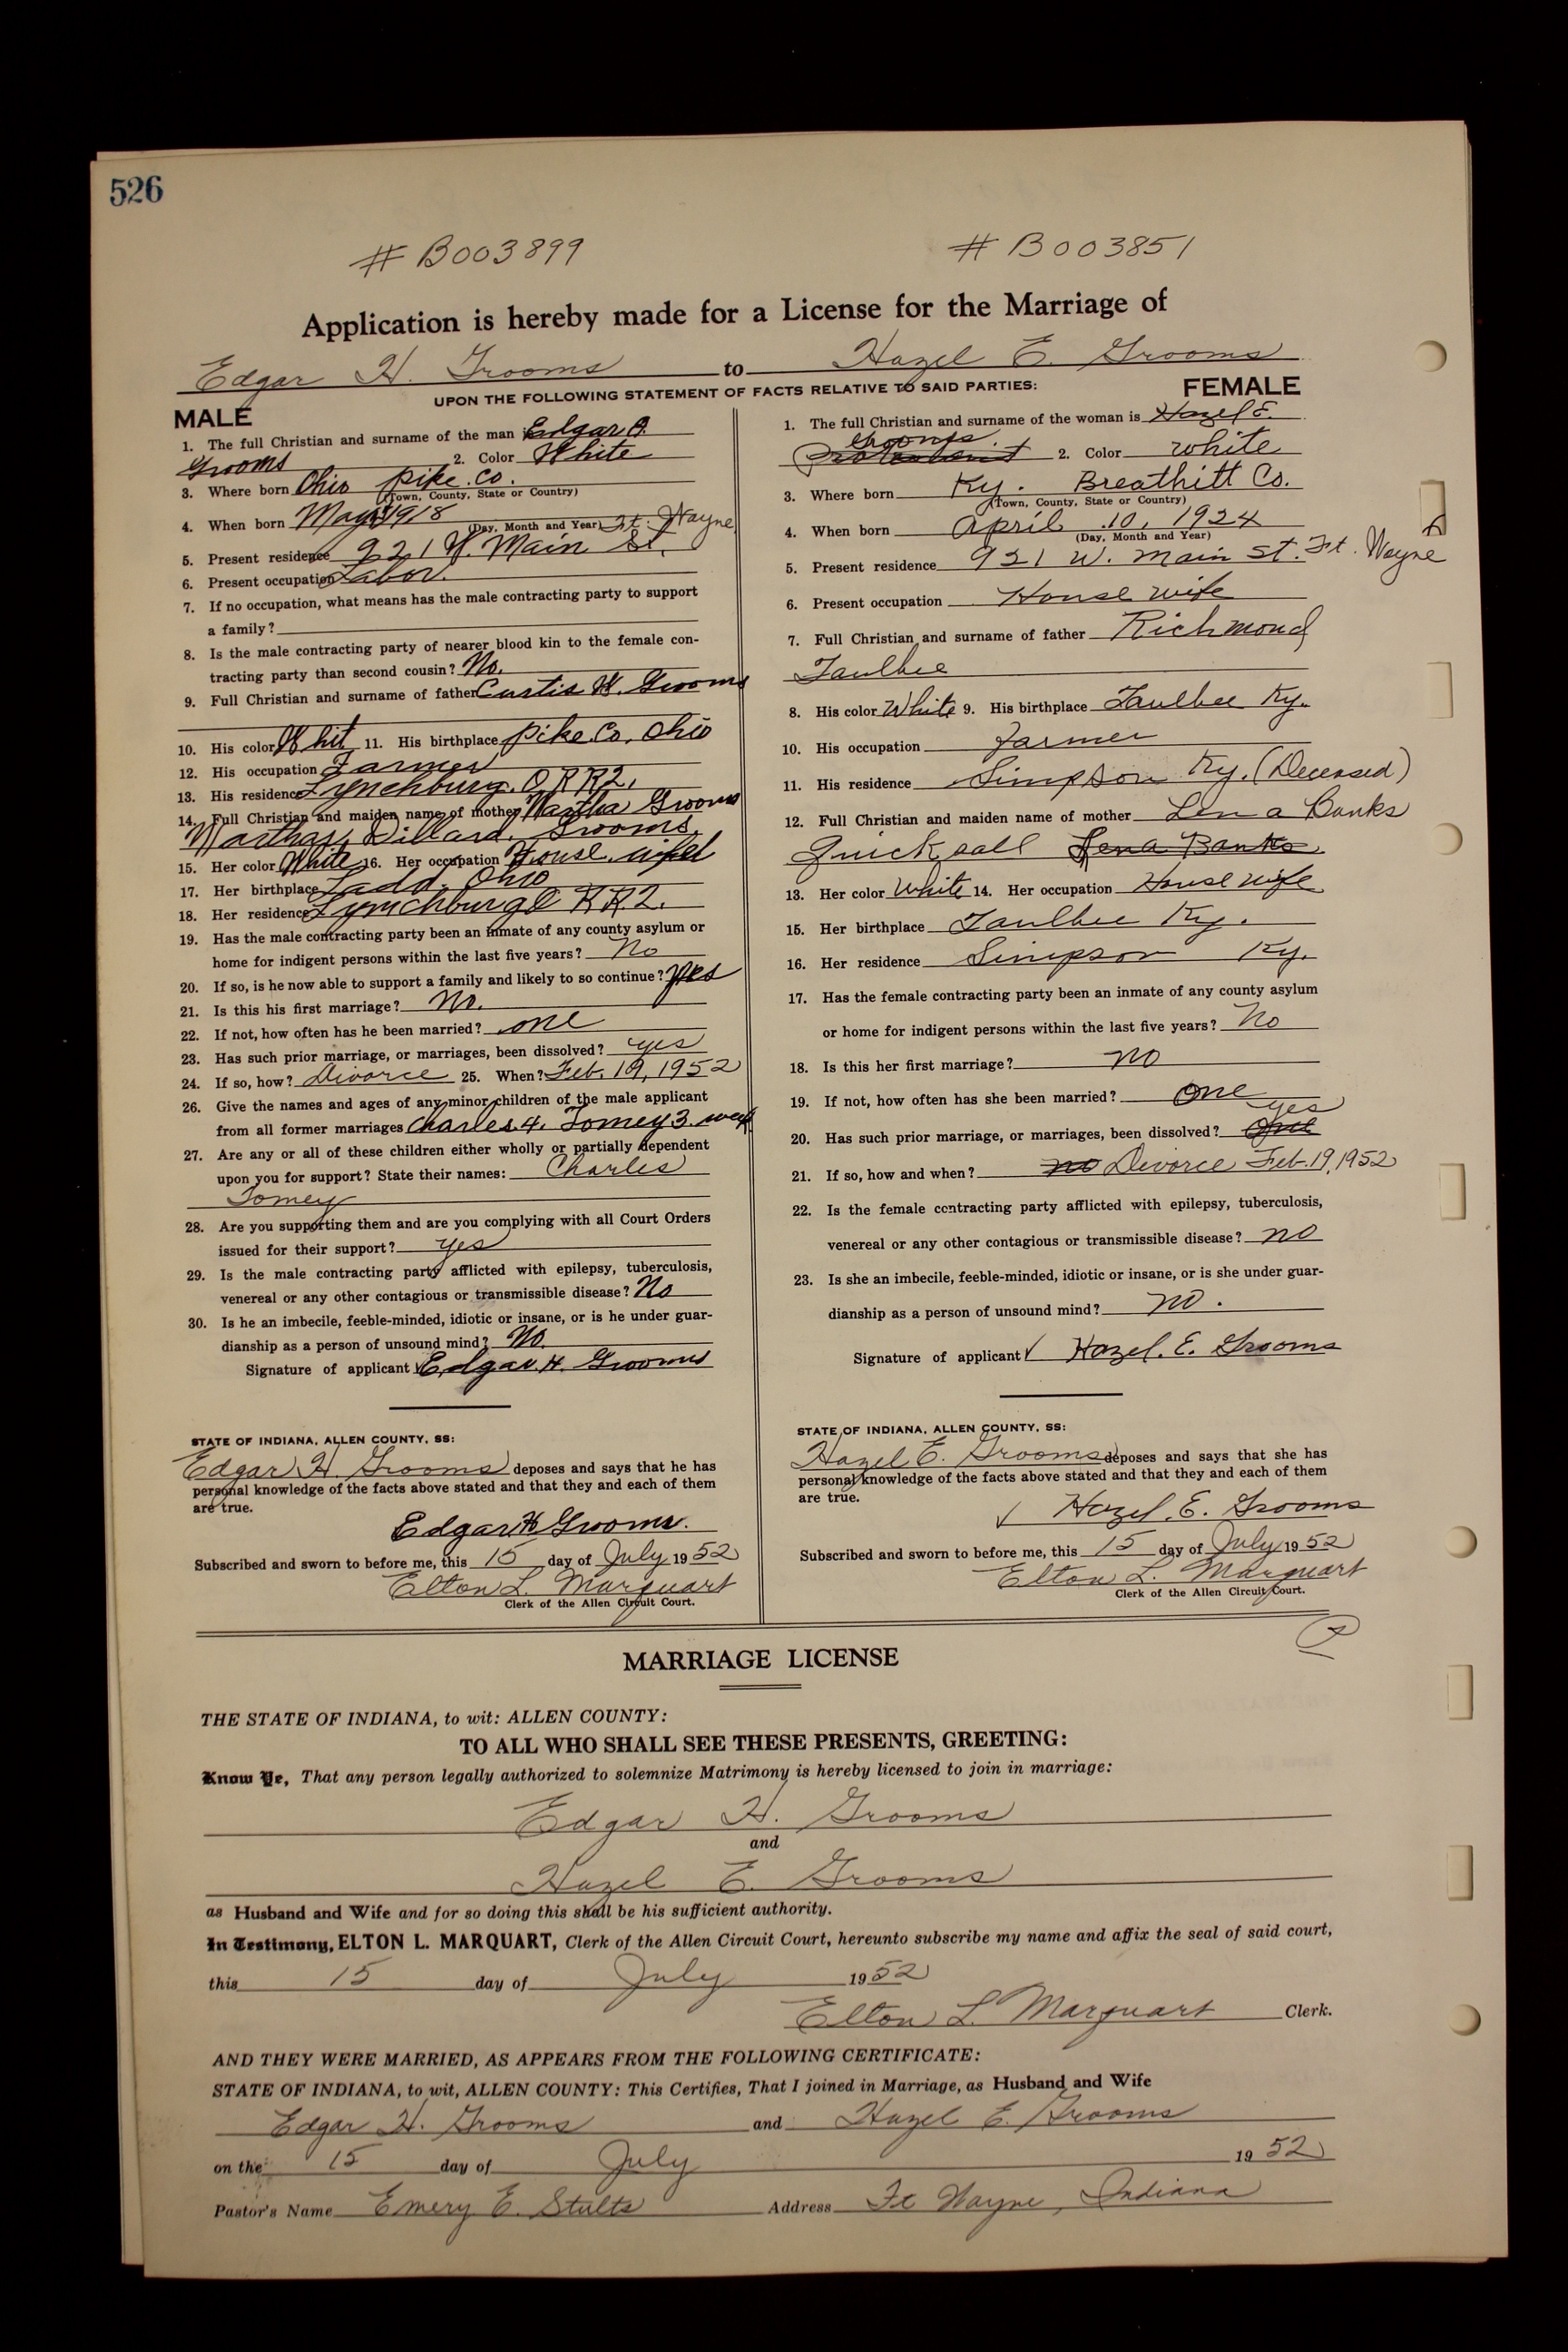 526
# B003899
# B003851
Application is hereby made for a License for the Marriage of
Edgar H. Grooms to Hazel E. Grooms
UPON THE FOLLOWING STATEMENT OF FACTS RELATIVE TO SAID PARTIES:
MALE
1. The full Christian and surname of the man is Edgar
Grooms 2. Color White
3. Where born Ohio Pike. Co.
(Town, County, State or Country)
4. When born May 1918
(Day, Month and Year) Ft. Wayne
5. Present residence 921 W. Main St.
6. Present occupation Labor.
7. If no occupation, what means has the male contracting party to support
a family?
8. Is the male contracting party of nearer blood kin to the female con-
tracting party than second cousin? No.
9. Full Christian and surname of father Curtis W. Grooms
10. His color Whit 11. His birthplace Pike Co, Ohio
12. His occupation Farmer
13. His residence Lynchburg. O. R R 2.
14. Full Christian and maiden name of mother Martha Grooms
Martha, Dillard. Grooms.
15. Her color White 16. Her occupation House. wife
17. Her birthplace Ohio
18. Her residence Lynchburg O R R. 2.
19. Has the male contracting party been an inmate of any county asylum or
home for indigent persons within the last five years? No
20. If so, is he now able to support a family and likely to so continue? yes
21. Is this his first marriage? No.
22. If not, how often has he been married? one
23. Has such prior marriage, or marriages, been dissolved? yes
24. If so, how? Divorce 25. When? Feb. 19, 1952
26. Give the names and ages of any minor children of the male applicant
from all former marriages Charles 4. Tomey 3. week
27. Are any or all of these children either wholly or partially dependent
upon you for support? State their names: Charles
Tomey
28. Are you supporting them and are you complying with all Court Orders
issued for their support? yes
29. Is the male contracting party afflicted with epilepsy, tuberculosis,
venereal or any other contagious or transmissible disease? No
30. Is he an imbecile, feeble-minded, idiotic or insane, or is he under guar-
dianship as a person of unsound mind? No.
Signature of applicant Edgar. H. Grooms
STATE OF INDIANA, ALLEN COUNTY, SS:
Edgar H. Grooms deposes and says that he has
personal knowledge of the facts above stated and that they and each of them
are true.
Edgar H Grooms.
Subscribed and sworn to before me, this 15 day of July 1952
Elton L. Marquart
Clerk of the Allen Circuit Court.
FEMALE
1. The full Christian and surname of the woman is Hazel E.
Grooms. 2. Color white
3. Where born Ky. Breathitt Co.
(Town, County, State or Country)
4. When born April 10, 1924
(Day, Month and Year)
5. Present residence 921 W. Main St. Ft. Wayne
6. Present occupation House wife
7. Full Christian and surname of father Richmond
Taulbee
8. His color White 9. His birthplace Taulbee Ky.
10. His occupation Farmer
11. His residence Simpson Ky. (Deceased)
12. Full Christian and maiden name of mother Lena Banks
Quicksall Lena Banks
13. Her color White 14. Her occupation House wife
15. Her birthplace Taulbee Ky.
16. Her residence Simpson Ky.
17. Has the female contracting party been an inmate of any county asylum
or home for indigent persons within the last five years? No
18. Is this her first marriage? no
19. If not, how often has she been married? one
20. Has such prior marriage, or marriages, been dissolved? yes
21. If so, how and when? no Divorce Feb. 19, 1952
22. Is the female contracting party afflicted with epilepsy, tuberculosis,
venereal or any other contagious or transmissible disease? no
23. Is she an imbecile, feeble-minded, idiotic or insane, or is she under guar-
dianship as a person of unsound mind? no.
Signature of applicant Hazel. E. Grooms
STATE OF INDIANA, ALLEN COUNTY, SS:
Hazel E. Grooms deposes and says that she has
personal knowledge of the facts above stated and that they and each of them
are true.
Hazel. E. Grooms
Subscribed and sworn to before me, this 15 day of July 1952
Elton L. Marquart
Clerk of the Allen Circuit Court.
MARRIAGE LICENSE
THE STATE OF INDIANA, to wit: ALLEN COUNTY:
TO ALL WHO SHALL SEE THESE PRESENTS, GREETING:
Know Ye, That any person legally authorized to solemnize Matrimony is hereby licensed to join in marriage:
Edgar H. Grooms
and
Hazel E. Grooms
as Husband and Wife and for so doing this shall be his sufficient authority.
In Testimony, ELTON L. MARQUART, Clerk of the Allen Circuit Court, hereunto subscribe my name and affix the seal of said court,
this 15 day of July 1952
Elton L. Marquart Clerk.
AND THEY WERE MARRIED, AS APPEARS FROM THE FOLLOWING CERTIFICATE:
STATE OF INDIANA, to wit, ALLEN COUNTY: This Certifies, That I joined in Marriage, as Husband and Wife
Edgar H. Grooms and Hazel E. Grooms
on the 15 day of July 1952
Pastor's Name Emery E. Stults Address Ft Wayne, Indiana